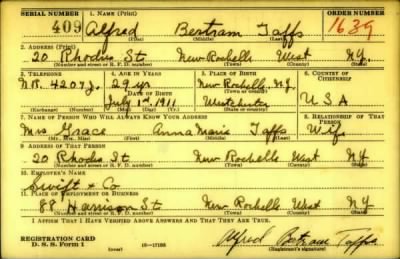 SERIAL NUMBER 1. NAME (Print) ORDER NUMBER
409 Alfred Bertram Taffs 1639
(First) (Middle) (Last)
2. ADDRESS (Print)
20 Rhodes St New Rochelle West N.Y.
(Number and street or R. F. D. number) (Town) (County) (State)
3. TELEPHONE 4. AGE IN YEARS 5. PLACE OF BIRTH 6. COUNTRY OF CITIZENSHIP
N.R. 4207J. 29 yr New Rochelle, N.Y.
DATE OF BIRTH
July 1st 1911 Westchester U S A
(Exchange) (Number) (Mo.) (Day) (Yr.) (State or country)
7. NAME OF PERSON WHO WILL ALWAYS KNOW YOUR ADDRESS 8. RELATIONSHIP OF THAT PERSON
Mrs Grace Anna Marie Taffs Wife
(Mr., Mrs., Miss) (First) (Middle) (Last)
9. ADDRESS OF THAT PERSON
20 Rhodes St New Rochelle West N.Y.
(Number and street or R. F. D. number) (Town) (County) (State)
10. EMPLOYER'S NAME
Swift + Co
11. PLACE OF EMPLOYMENT OR BUSINESS
88 Harrison St New Rochelle West NY
(Number and street or R. F. D. number) (Town) (County) (State)
I AFFIRM THAT I HAVE VERIFIED ABOVE ANSWERS AND THAT THEY ARE TRUE.
REGISTRATION CARD
D. S. S. Form 1 (over) 16—17105 Alfred Bertram Taffs
(Registrant's signature)